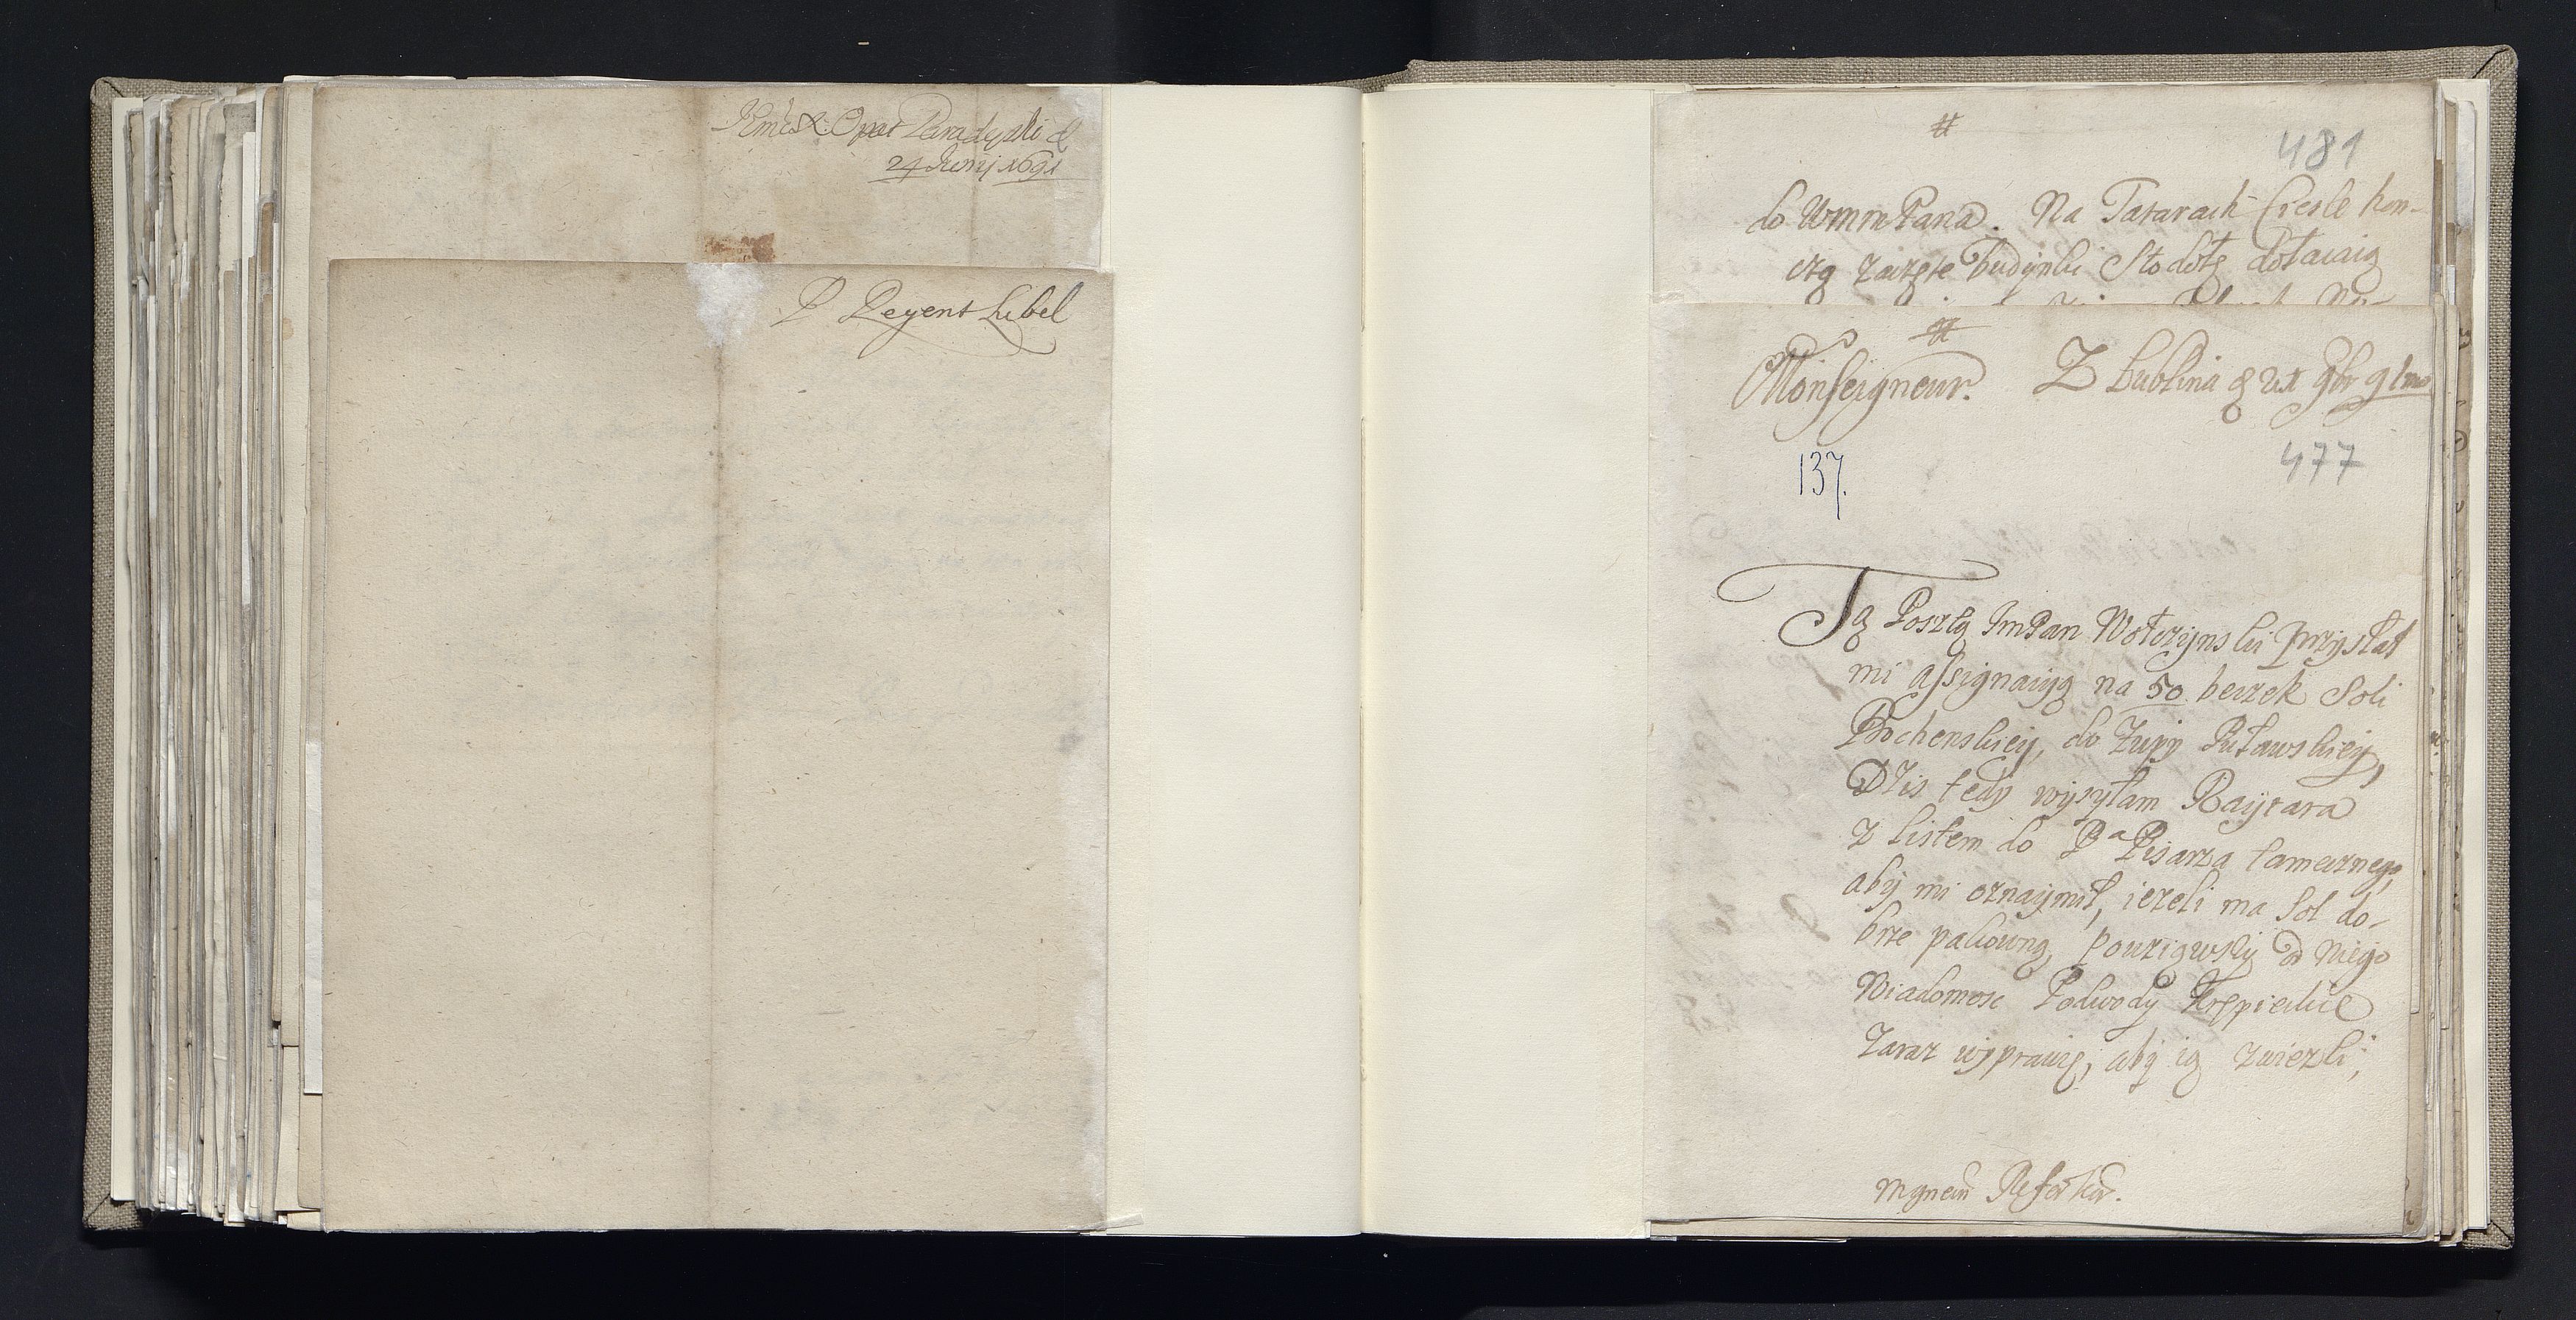 Opat Paradyski d
24 Junij 1691
P Regent Lubel
#
481
do WmmPana. Na Tatarach Cieśle koń-
czą zaczęte budynki Stodołę dostaiaią
#
Monseigneur. Z Lublina d 21 9br 91mo
477
137.
Tą Posztą ImPan Wołczynski przysłał
mi assignacyą na 50 beczek Soli
Bochenskiey, do Zupy Puławskiey,
Dzis tedy wysyłam Raytara
z listem do Pa Pisarza tamecznego,
aby mi oznaymił, iezeli ma Sol do-
brze pakowną, powziąwszy od niego
Wiadomosc Podwody Krępieckie
zaraz wyprawię, aby ią zwiezli;